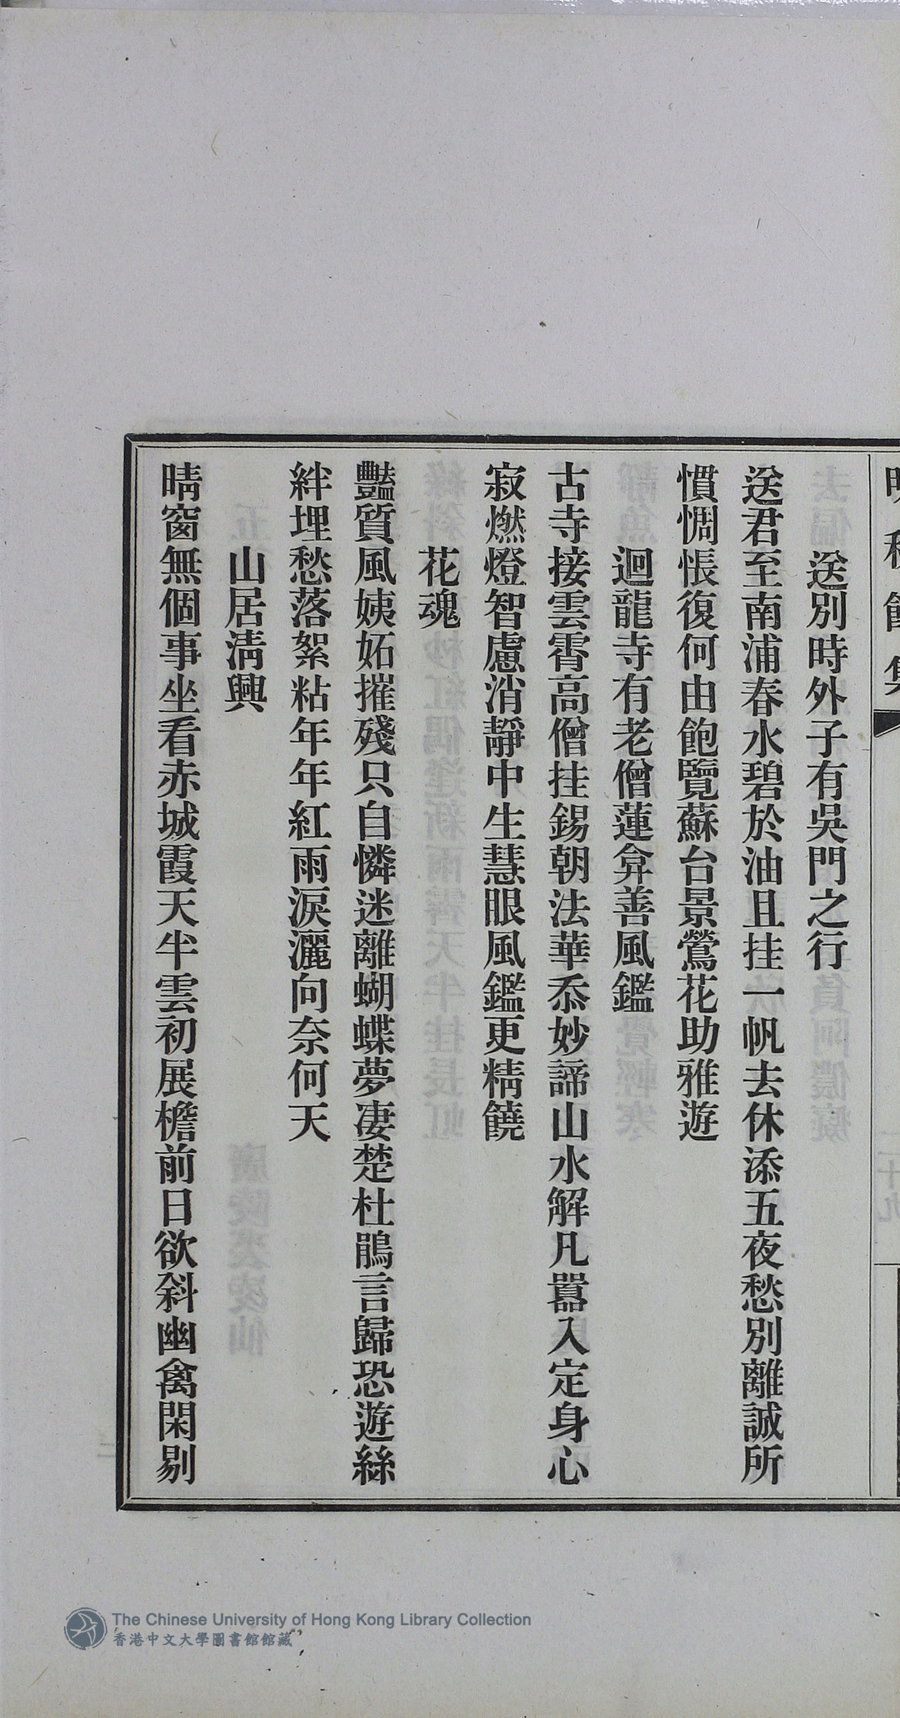 送別時外子有吳門之行
送君至南浦春水碧於油且挂一帆去休添五夜愁別離誠所
慣惆悵復何由飽覽蘇台景鶯花助雅遊
迴龍寺有老僧蓮弅善風鑑
古寺接雲霄高僧挂錫朝法華叅妙諦山水解凡囂入定身心
寂燃燈智慮消靜中生慧眼風鑑更精饒
花魂
豔質風姨妬摧殘只自憐迷離蝴蝶夢凄楚杜鵑言歸恐遊絲
絆埋愁落絮粘年年紅雨淚灑向奈何天
山居淸興
晴窗無個事坐看赤城霞天半雲初展檐前日欲斜幽禽閑剔
The Chinese University of Hong Kong Library Collection
香港中文大學圖書館館藏